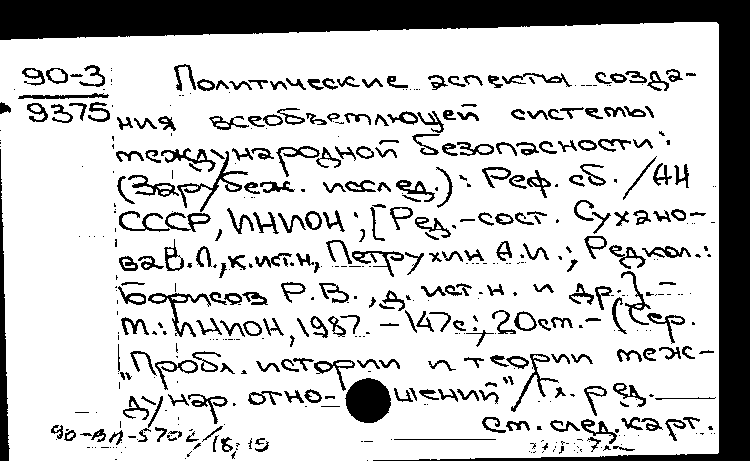 90-3
9375
Политические аспекты созда-
ния всеобъемлющей системы
международной безопасности:
(Зарубеж. исслед.): Реф. сб. / АН
СССР, ИНИОН; [Ред.-сост. Сухано-
ва В.Л., к.ист.н, Петрухин А.И.; Редкол.:
Борисов Р.В., д. ист.н. и др.]. –
М.: ИНИОН, 1987. – 147с; 20см. – (Сер.
„Пробл. истории и теории меж-
дунар. отно-шений" / Гл. ред.
см. след. карт.
18, 19